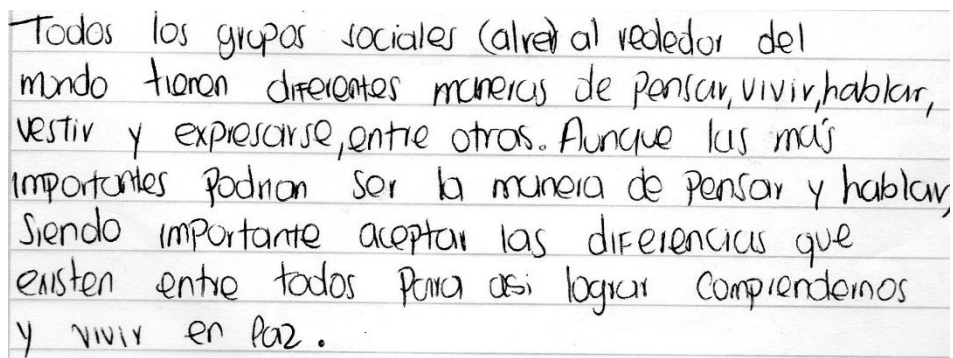 Todos los grupos sociales (alre) al rededor del
mundo tienen diferentes maneras de pensar, vivir, hablar,
vestir y expresarse, entre otros. Aunque las más
importantes podrian ser la manera de pensar y hablar,
siendo importante aceptar las diferencias que
existen entre todos para asi lograr comprendernos
y vivir en paz.